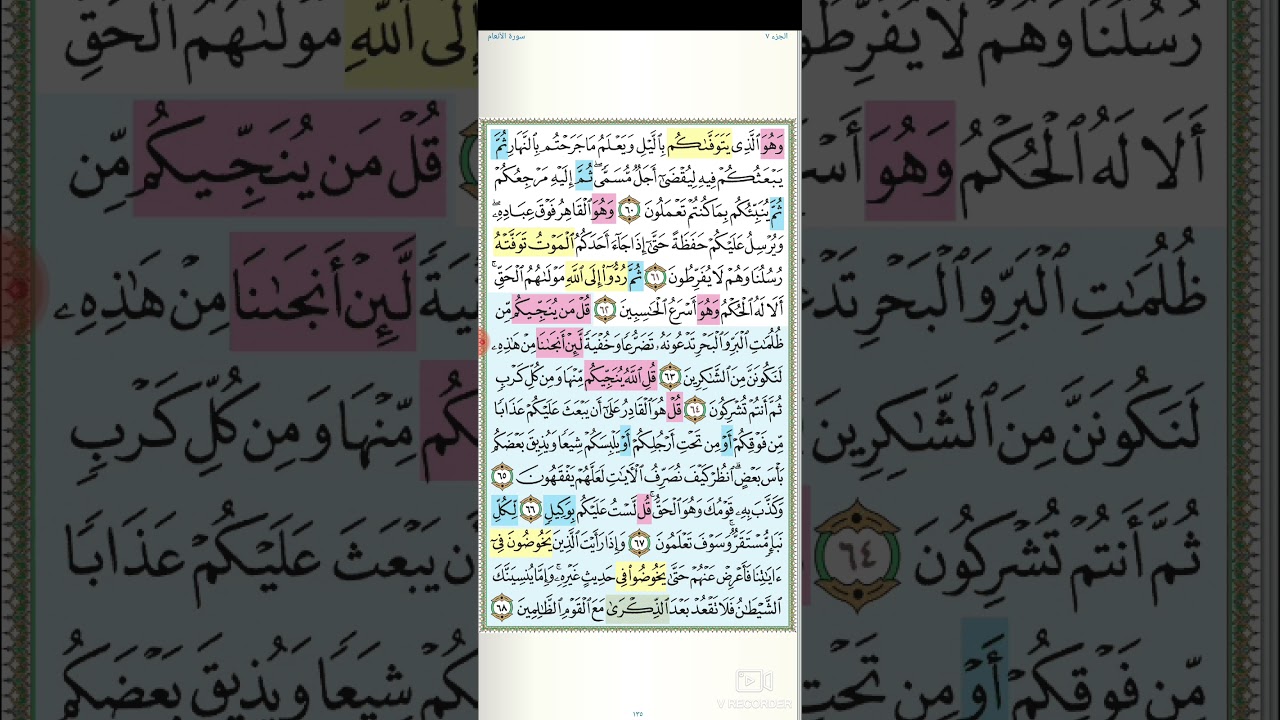 سورة الأنعام
الجزء ٧
وَهُوَ ٱلَّذِى يَتَوَفَّىٰكُم بِٱلَّيْلِ وَيَعْلَمُ مَا جَرَحْتُم بِٱلنَّهَارِ ثُمَّ
يَبْعَثُكُمْ فِيهِ لِيُقْضَىٰٓ أَجَلٌ مُّسَمًّى ۖ ثُمَّ إِلَيْهِ مَرْجِعُكُمْ
ثُمَّ يُنَبِّئُكُم بِمَا كُنتُمْ تَعْمَلُونَ ٦٠ وَهُوَ ٱلْقَاهِرُ فَوْقَ عِبَادِهِۦ ۖ
وَيُرْسِلُ عَلَيْكُمْ حَفَظَةً حَتَّىٰٓ إِذَا جَآءَ أَحَدَكُمُ ٱلْمَوْتُ تَوَفَّتْهُ
رُسُلُنَا وَهُمْ لَا يُفَرِّطُونَ ٦١ ثُمَّ رُدُّوٓا۟ إِلَى ٱللَّهِ مَوْلَىٰهُمُ ٱلْحَقِّ ۚ
أَلَا لَهُ ٱلْحُكْمُ وَهُوَ أَسْرَعُ ٱلْحَٰسِبِينَ ٦٢ قُلْ مَن يُنَجِّيكُم مِّن
ظُلُمَٰتِ ٱلْبَرِّ وَٱلْبَحْرِ تَدْعُونَهُۥ تَضَرُّعًا وَخُفْيَةً لَّئِنْ أَنجَىٰنَا مِنْ هَٰذِهِۦ
لَنَكُونَنَّ مِنَ ٱلشَّٰكِرِينَ ٦٣ قُلِ ٱللَّهُ يُنَجِّيكُم مِّنْهَا وَمِن كُلِّ كَرْبٍ
ثُمَّ أَنتُمْ تُشْرِكُونَ ٦٤ قُلْ هُوَ ٱلْقَادِرُ عَلَىٰٓ أَن يَبْعَثَ عَلَيْكُمْ عَذَابًا
مِّن فَوْقِكُمْ أَوْ مِن تَحْتِ أَرْجُلِكُمْ أَوْ يَلْبِسَكُمْ شِيَعًا وَيُذِيقَ بَعْضَكُم
بَأْسَ بَعْضٍ ۗ ٱنظُرْ كَيْفَ نُصَرِّفُ ٱلْءَايَٰتِ لَعَلَّهُمْ يَفْقَهُونَ ٦٥
وَكَذَّبَ بِهِۦ قَوْمُكَ وَهُوَ ٱلْحَقُّ ۚ قُل لَّسْتُ عَلَيْكُم بِوَكِيلٍ ٦٦ لِّكُلِّ
نَبَإٍ مُّسْتَقَرٌّ ۚ وَسَوْفَ تَعْلَمُونَ ٦٧ وَإِذَا رَأَيْتَ ٱلَّذِينَ يَخُوضُونَ فِىٓ
ءَايَٰتِنَا فَأَعْرِضْ عَنْهُمْ حَتَّىٰ يَخُوضُوا۟ فِى حَدِيثٍ غَيْرِهِۦ ۚ وَإِمَّا يُنسِيَنَّكَ
ٱلشَّيْطَٰنُ فَلَا تَقْعُدْ بَعْدَ ٱلذِّكْرَىٰ مَعَ ٱلْقَوْمِ ٱلظَّٰلِمِينَ ٦٨
V RECORDER
١٣٥